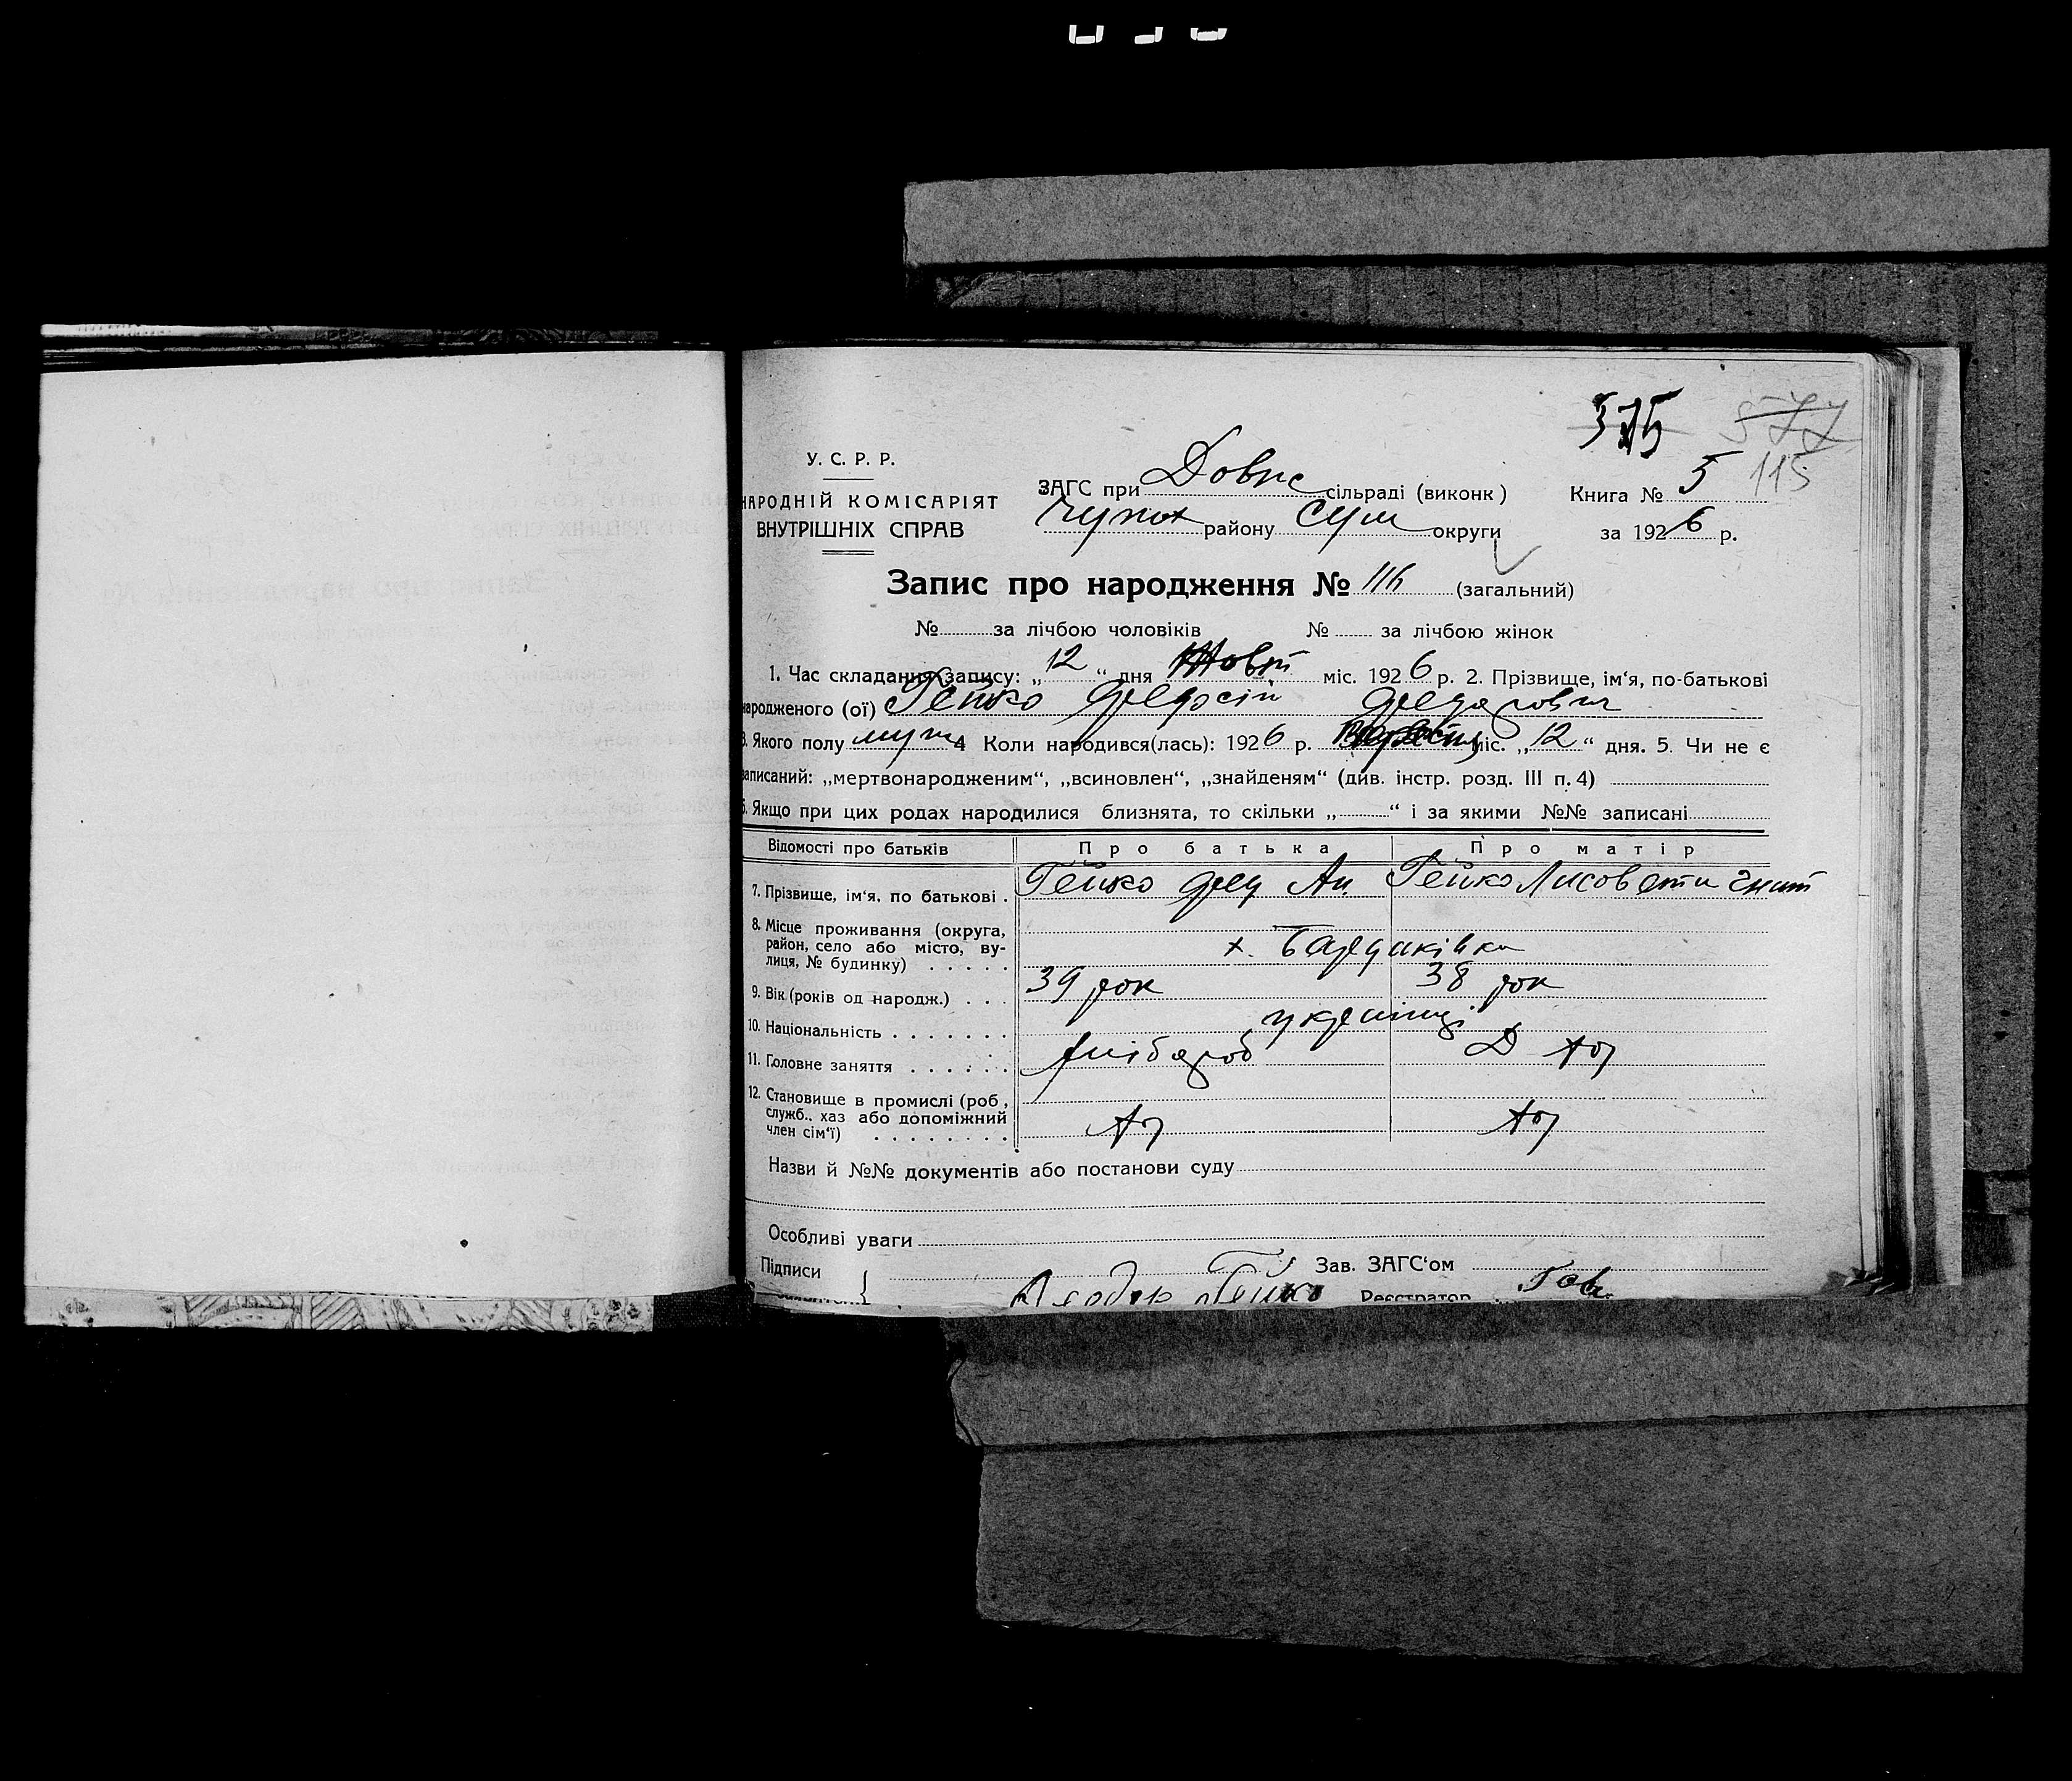 375 577
115
У. С. Р. Р.
НАРОДНІЙ КОМІСАРІЯТ
ВНУТРІШНІХ СПРАВ
ЗАГС при Довж сільраді (виконк) Книга № 5
району Сум округи за 1926 р.
Запис про народження № 116 (загальний)
№ за лічбою чоловіків № за лічбою жінок
1. Час складання запису: „12“ дня Жовт міс. 1926 р. 2. Прізвище, ім‘я, по-батькові
народженого (ої) Гейко
3. Якого полу муж 4 Коли народився(лась): 1926 р. міс. „12“ дня. 5. Чи не є
записаний: „мертвонародженим“, „всиновлен“, „знайденям“ (див. інстр. розд. III п. 4)
6. Якщо при цих родах народилися близнята, то скільки „ “ і за якими №№ записані
Відомості про батьків Про батька Про матір
7. Прізвище, ім‘я, по батькові . Гейко Фед Ан. Гейко Лисовети Гнат
8. Місце проживання (округа,
район, село або місто, ву-
лиця, № будинку) . . . . . х.
9. Вік (років од народж.) . . . 39 рок 38 рок
10. Національність . . . . . . . українці
11. Головне заняття . . . . . . хлібороб
12. Становище в промислі (роб,
служб., хаз або допоміжний
член сім‘ї) . . . . . . . .
Назви й №№ документів або постанови суду
Особливі уваги
Підписи { Зав. ЗАГС‘ом
Гейко Реєстратор